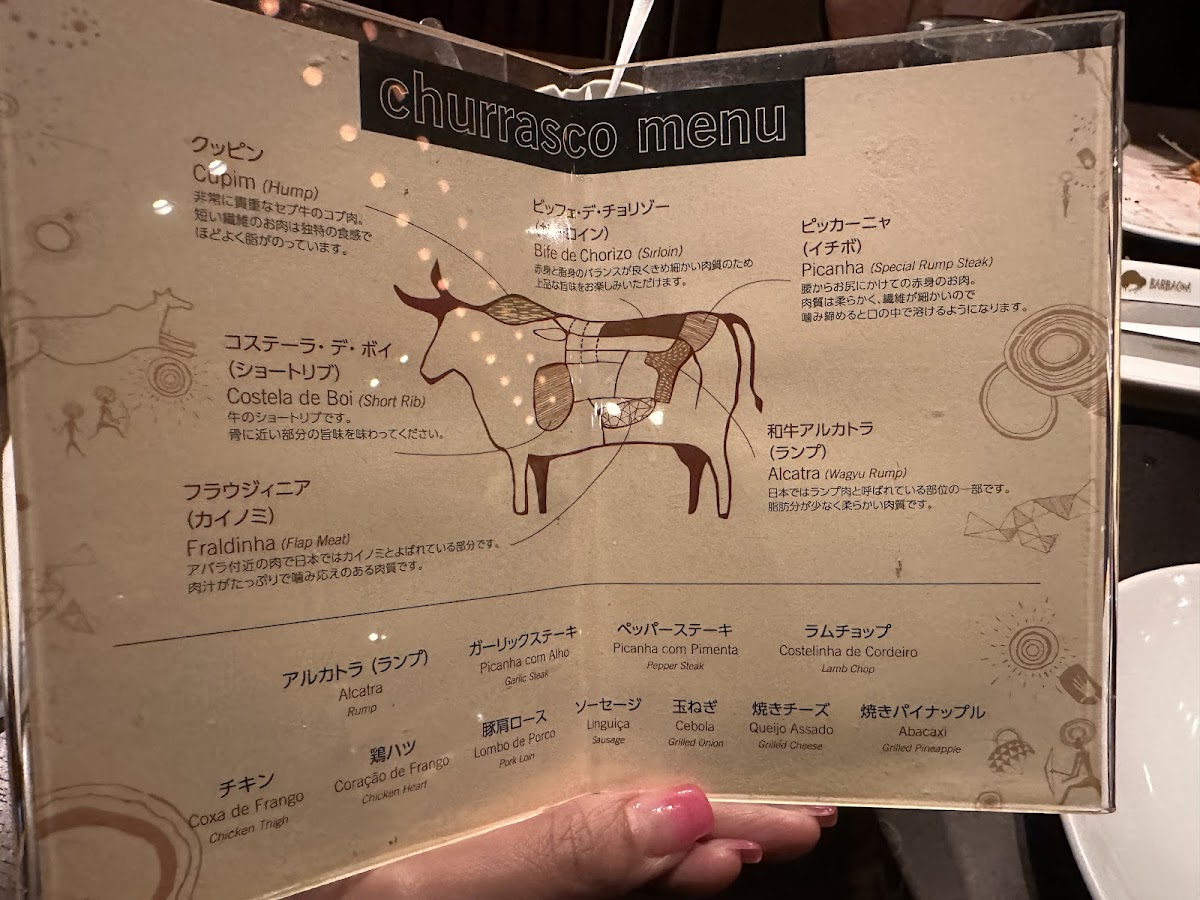 churrasco menu
クッピン
Cupim (Hump)
非常に貴重なセブ牛のコブ肉。
短い繊維のお肉は独特の食感で
ほどよく脂がのっています。
ビッフェ・デ・チョリゾー
ロイン)
Bife de Chorizo (Sirloin)
赤身と脂身のバランスが良くきめ細かい肉質のため
上品な旨味をお楽しみいただけます。
ピッカーニャ
(イチボ)
Picanha (Special Rump Steak)
腰からお尻にかけての赤身のお肉。
肉質は柔らかく、繊維が細かいので
噛み締めると口の中で溶けるようになります。
コステーラ・デ・ボイ
(ショートリブ)
Costela de Boi (Short Rib)
牛のショートリブです。
骨に近い部分の旨味を味わってください。
和牛アルカトラ
(ランプ)
Alcatra (Wagyu Rump)
日本ではランプ肉と呼ばれている部位の一部です。
脂肪分が少なく柔らかい肉質です。
フラウジィニア
(カイノミ)
Fraldinha (Flap Meat)
アバラ付近の肉で日本ではカイノミとよばれている部分です。
肉汁がたっぷりで噛み応えのある肉質です。
アルカトラ (ランプ)
Alcatra
Rump
ガーリックステーキ
Picanha com Alho
Garlic Steak
ペッパーステーキ
Picanha com Pimenta
Pepper Steak
ラムチョップ
Costelinha de Cordeiro
Lamb Chop
チキン
Coxa de Frango
Chicken Thigh
鶏ハツ
Coração de Frango
Chicken Heart
豚肩ロース
Lombo de Porco
Pork Loin
ソーセージ
Linguiça
Sausage
玉ねぎ
Cebola
Grilled Onion
焼きチーズ
Queijo Assado
Grilled Cheese
焼きパイナップル
Abacaxi
Grilled Pineapple
BARBACOA